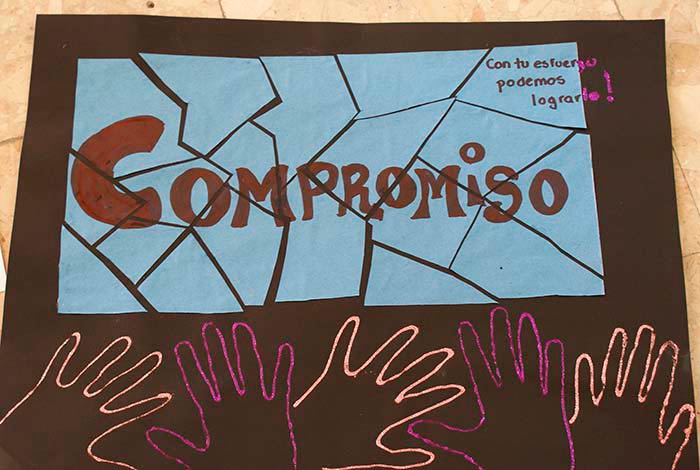 Con tu esfuerzo
podemos
lograrlo!
COMPROMiSO